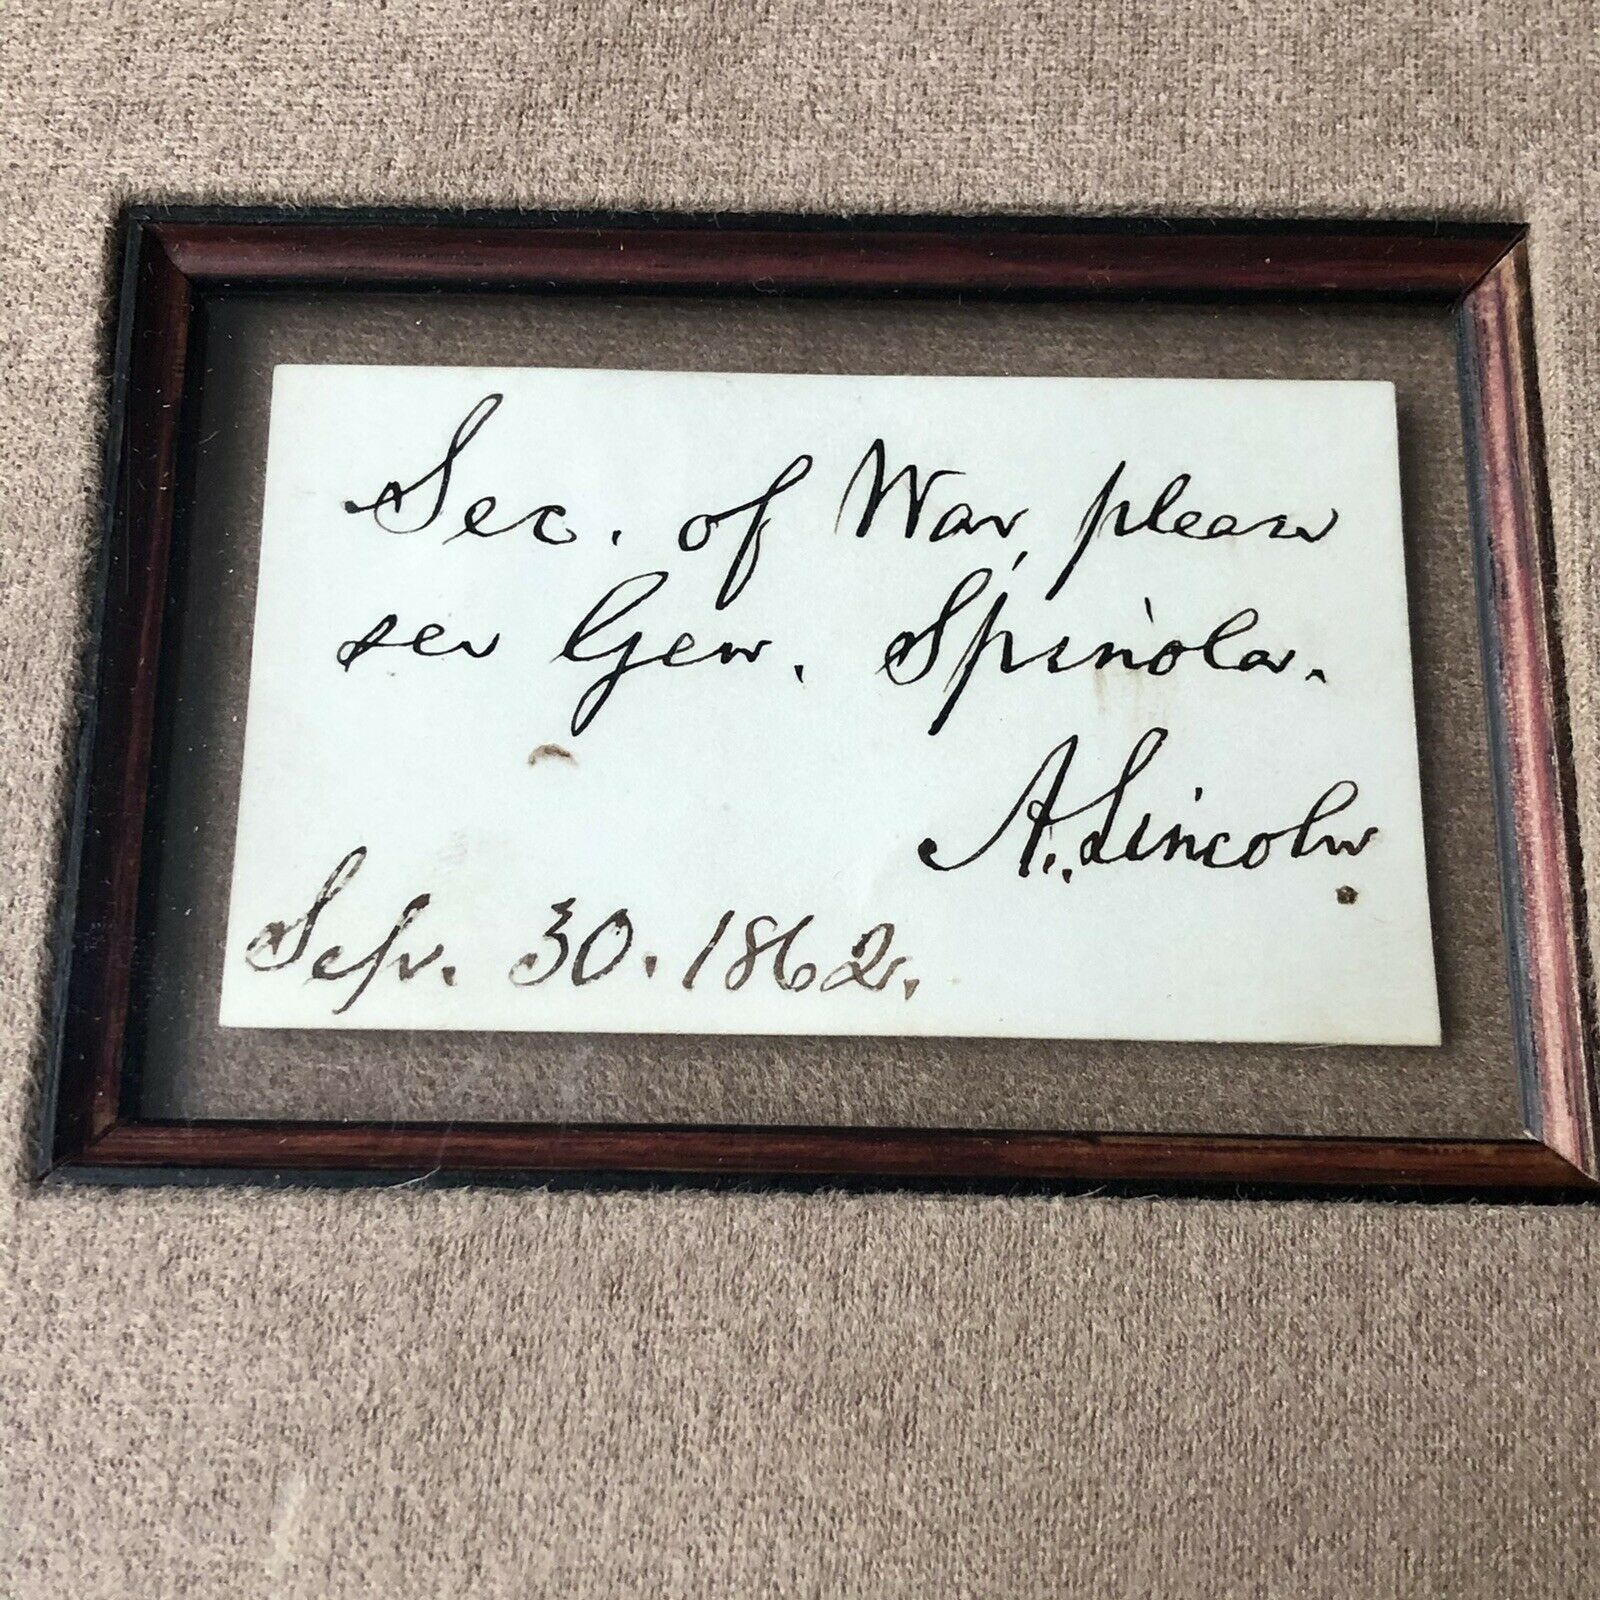 Sec. of War, please
see Gen. Spinola.
A. Lincoln
Sep. 30. 1862.